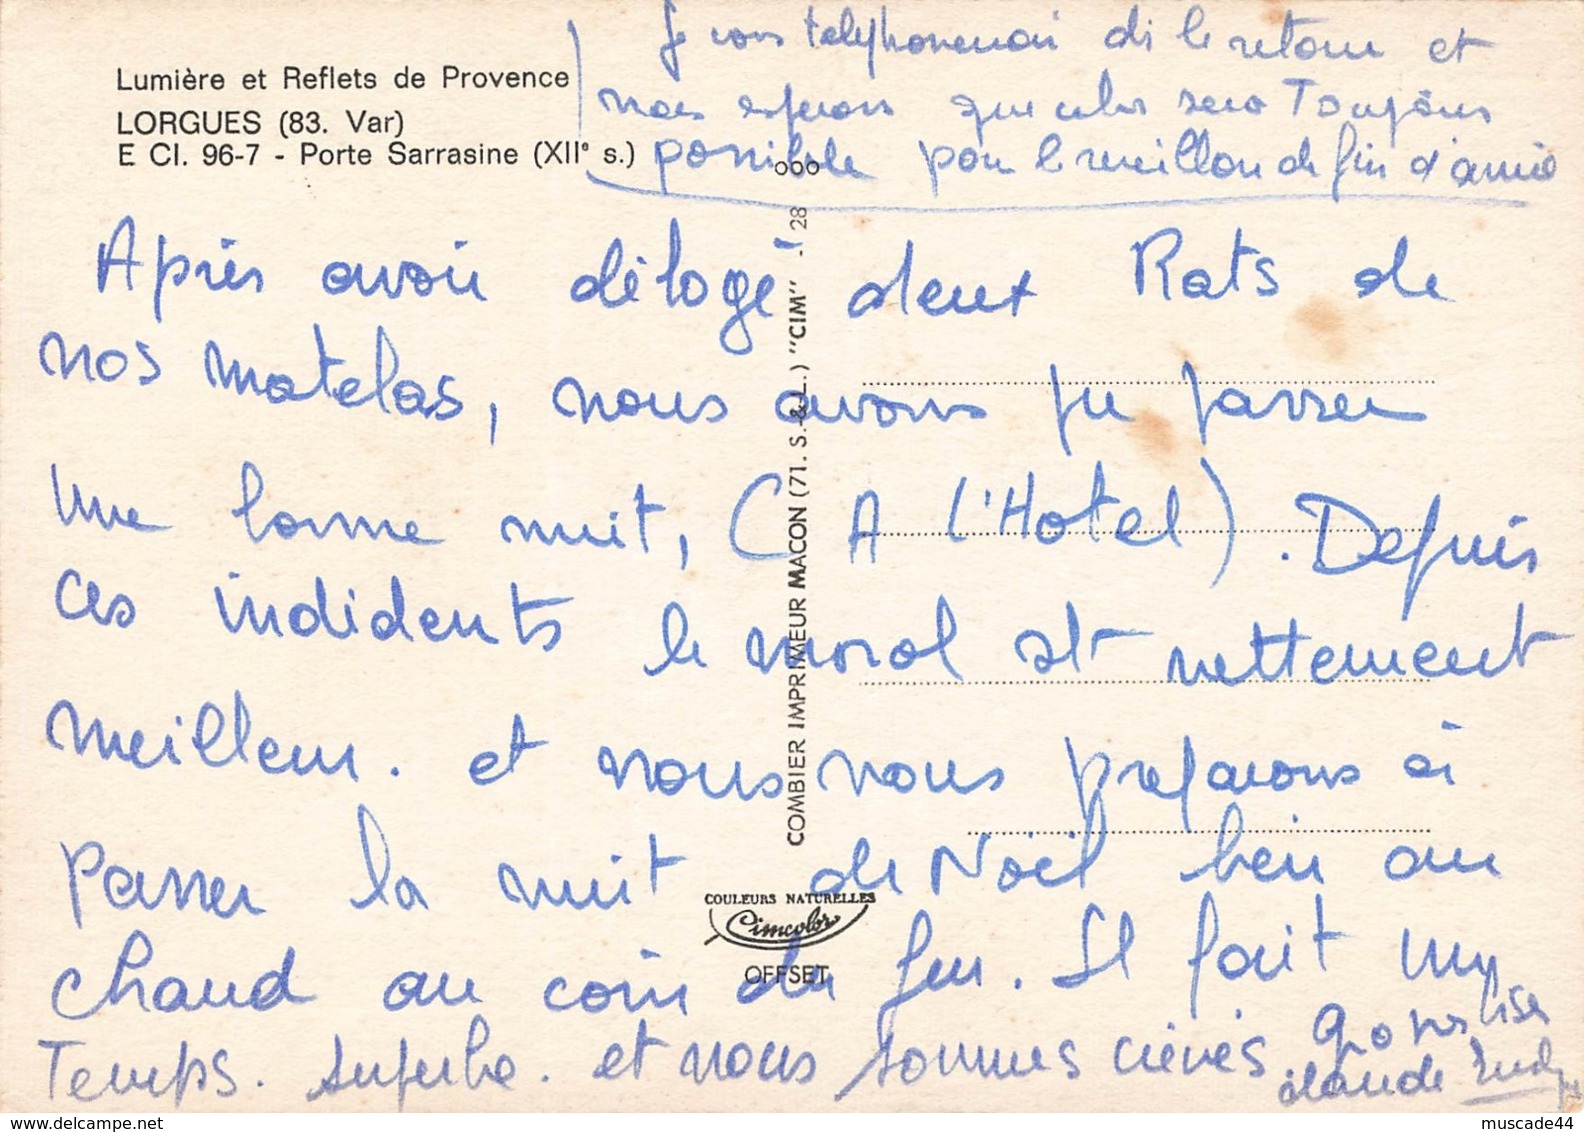 Je vous telephonerai dès le retour et
Lumière et Reflets de Provence
nous esperons que cela sera Toujours
LORGUES (83. Var)
E CI. 96-7 - Porte Sarrasine (XII° s.)
possible pour le reveillon de fin d'année
Après avoir délogé deux Rats de
nos matelas, nous avons pu passer
une bonne nuit, ( A l'Hotel). Depuis
ces indidents le moral est nettement
meilleur. et nous nous preparons à
passer la nuit de Noël bien au
chaud au coin du feu. Il fait un
Temps. superbe. et nous sommes crevés
claude
COMBIER IMPRIMEUR MACON (71. S.-&-L.) "CIM" - 28
COULEURS NATURELLES
Cimcolor
OFFSET
muscade44